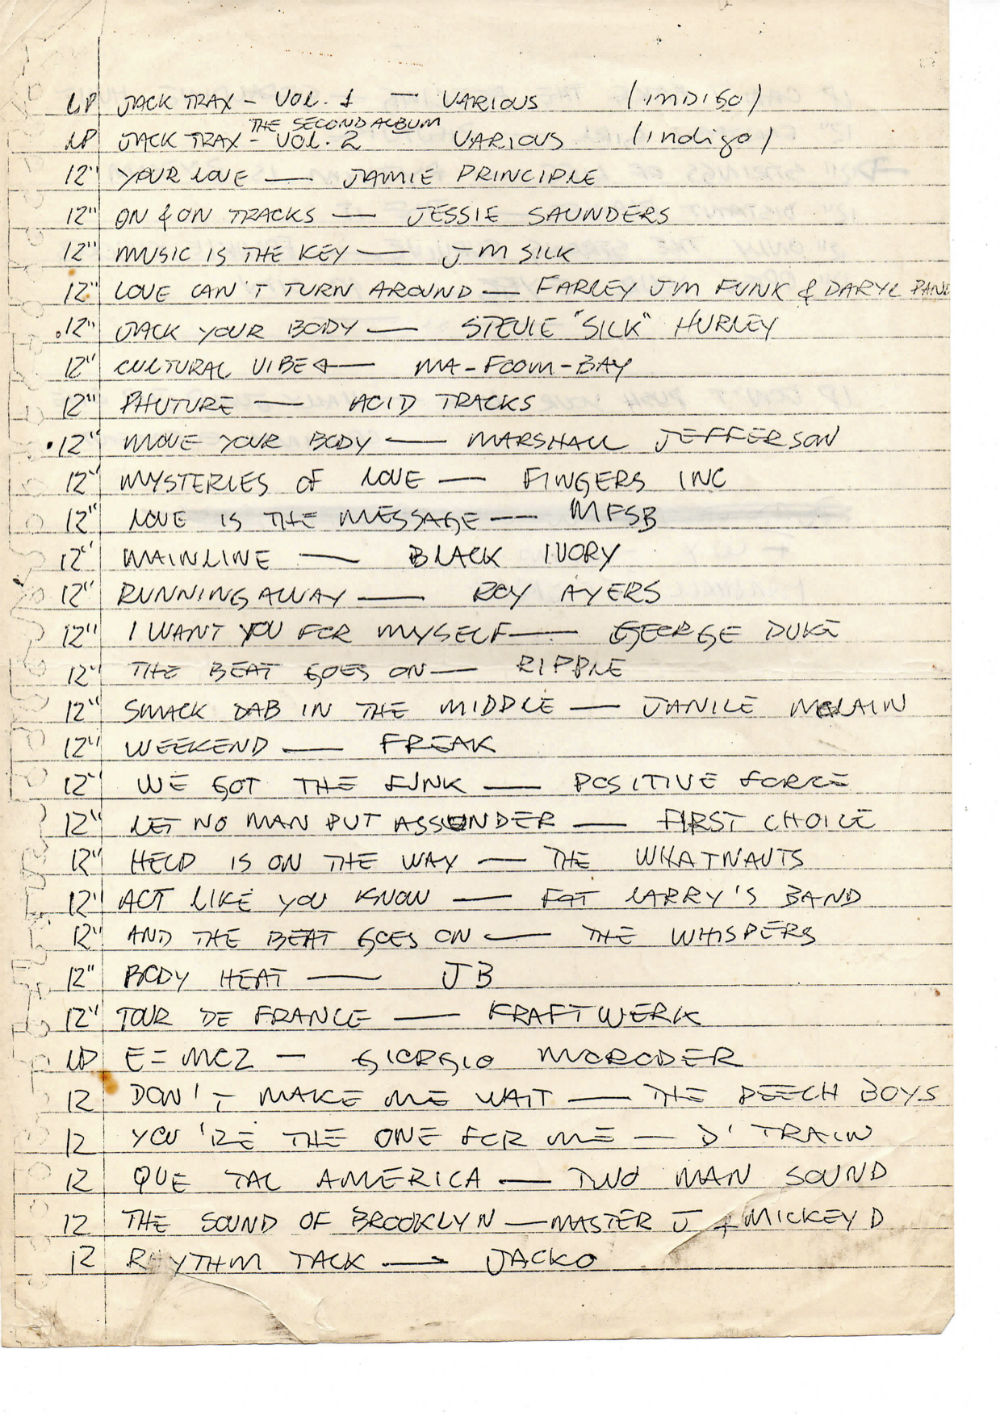 LP JACK TRAX - VOL. 1 — VARIOUS (INDIGO)
THE SECOND ALBUM
LP JACK TRAX - VOL. 2 VARIOUS (Indigo)
12" YOUR LOVE — JAMIE PRINCIPLE
12" ON & ON TRACKS — JESSIE SAUNDERS
12" MUSIC IS THE KEY — J M SILK
12" LOVE CAN'T TURN AROUND — FARLEY JM FUNK & DARYL PAN
.12" JACK YOUR BODY — STEVIE "SILK" HURLEY
12" CULTURAL VIBE — MA-FOOM-BAY
12" PHUTURE — ACID TRACKS
.12" MOVE YOUR BODY — MARSHALL JEFFERSON
12" MYSTERIES OF LOVE — FINGERS INC
12" LOVE IS THE MESSAGE — MFSB
12" MAINLINE — BLACK IVORY
12" RUNNING AWAY — ROY AYERS
12" I WANT YOU FOR MYSELF — GEORGE DUKE
12" THE BEAT GOES ON — RIPPLE
12" SMACK DAB IN THE MIDDLE — JANICE MCLAIN
12" WEEKEND — FREAK
12" WE GOT THE FUNK — POSITIVE FORCE
12" LET NO MAN PUT ASSUNDER — FIRST CHOICE
12" HELP IS ON THE WAY — THE WHATNAUTS
12" ACT LIKE YOU KNOW — FAT LARRY'S BAND
12" AND THE BEAT GOES ON — THE WHISPERS
12" BODY HEAT — JB
12" TOUR DE FRANCE — KRAFTWERK
LP E=MC2 — GIORGIO MORODER
12 DON'T MAKE ME WAIT — THE PEECH BOYS
12 YOU'RE THE ONE FOR ME — D'TRAIN
12 QUE TAL AMERICA — TWO MAN SOUND
12 THE SOUND OF BROOKLYN — MASTER J & MICKEY D
12 RHYTHM TACK — JACKO